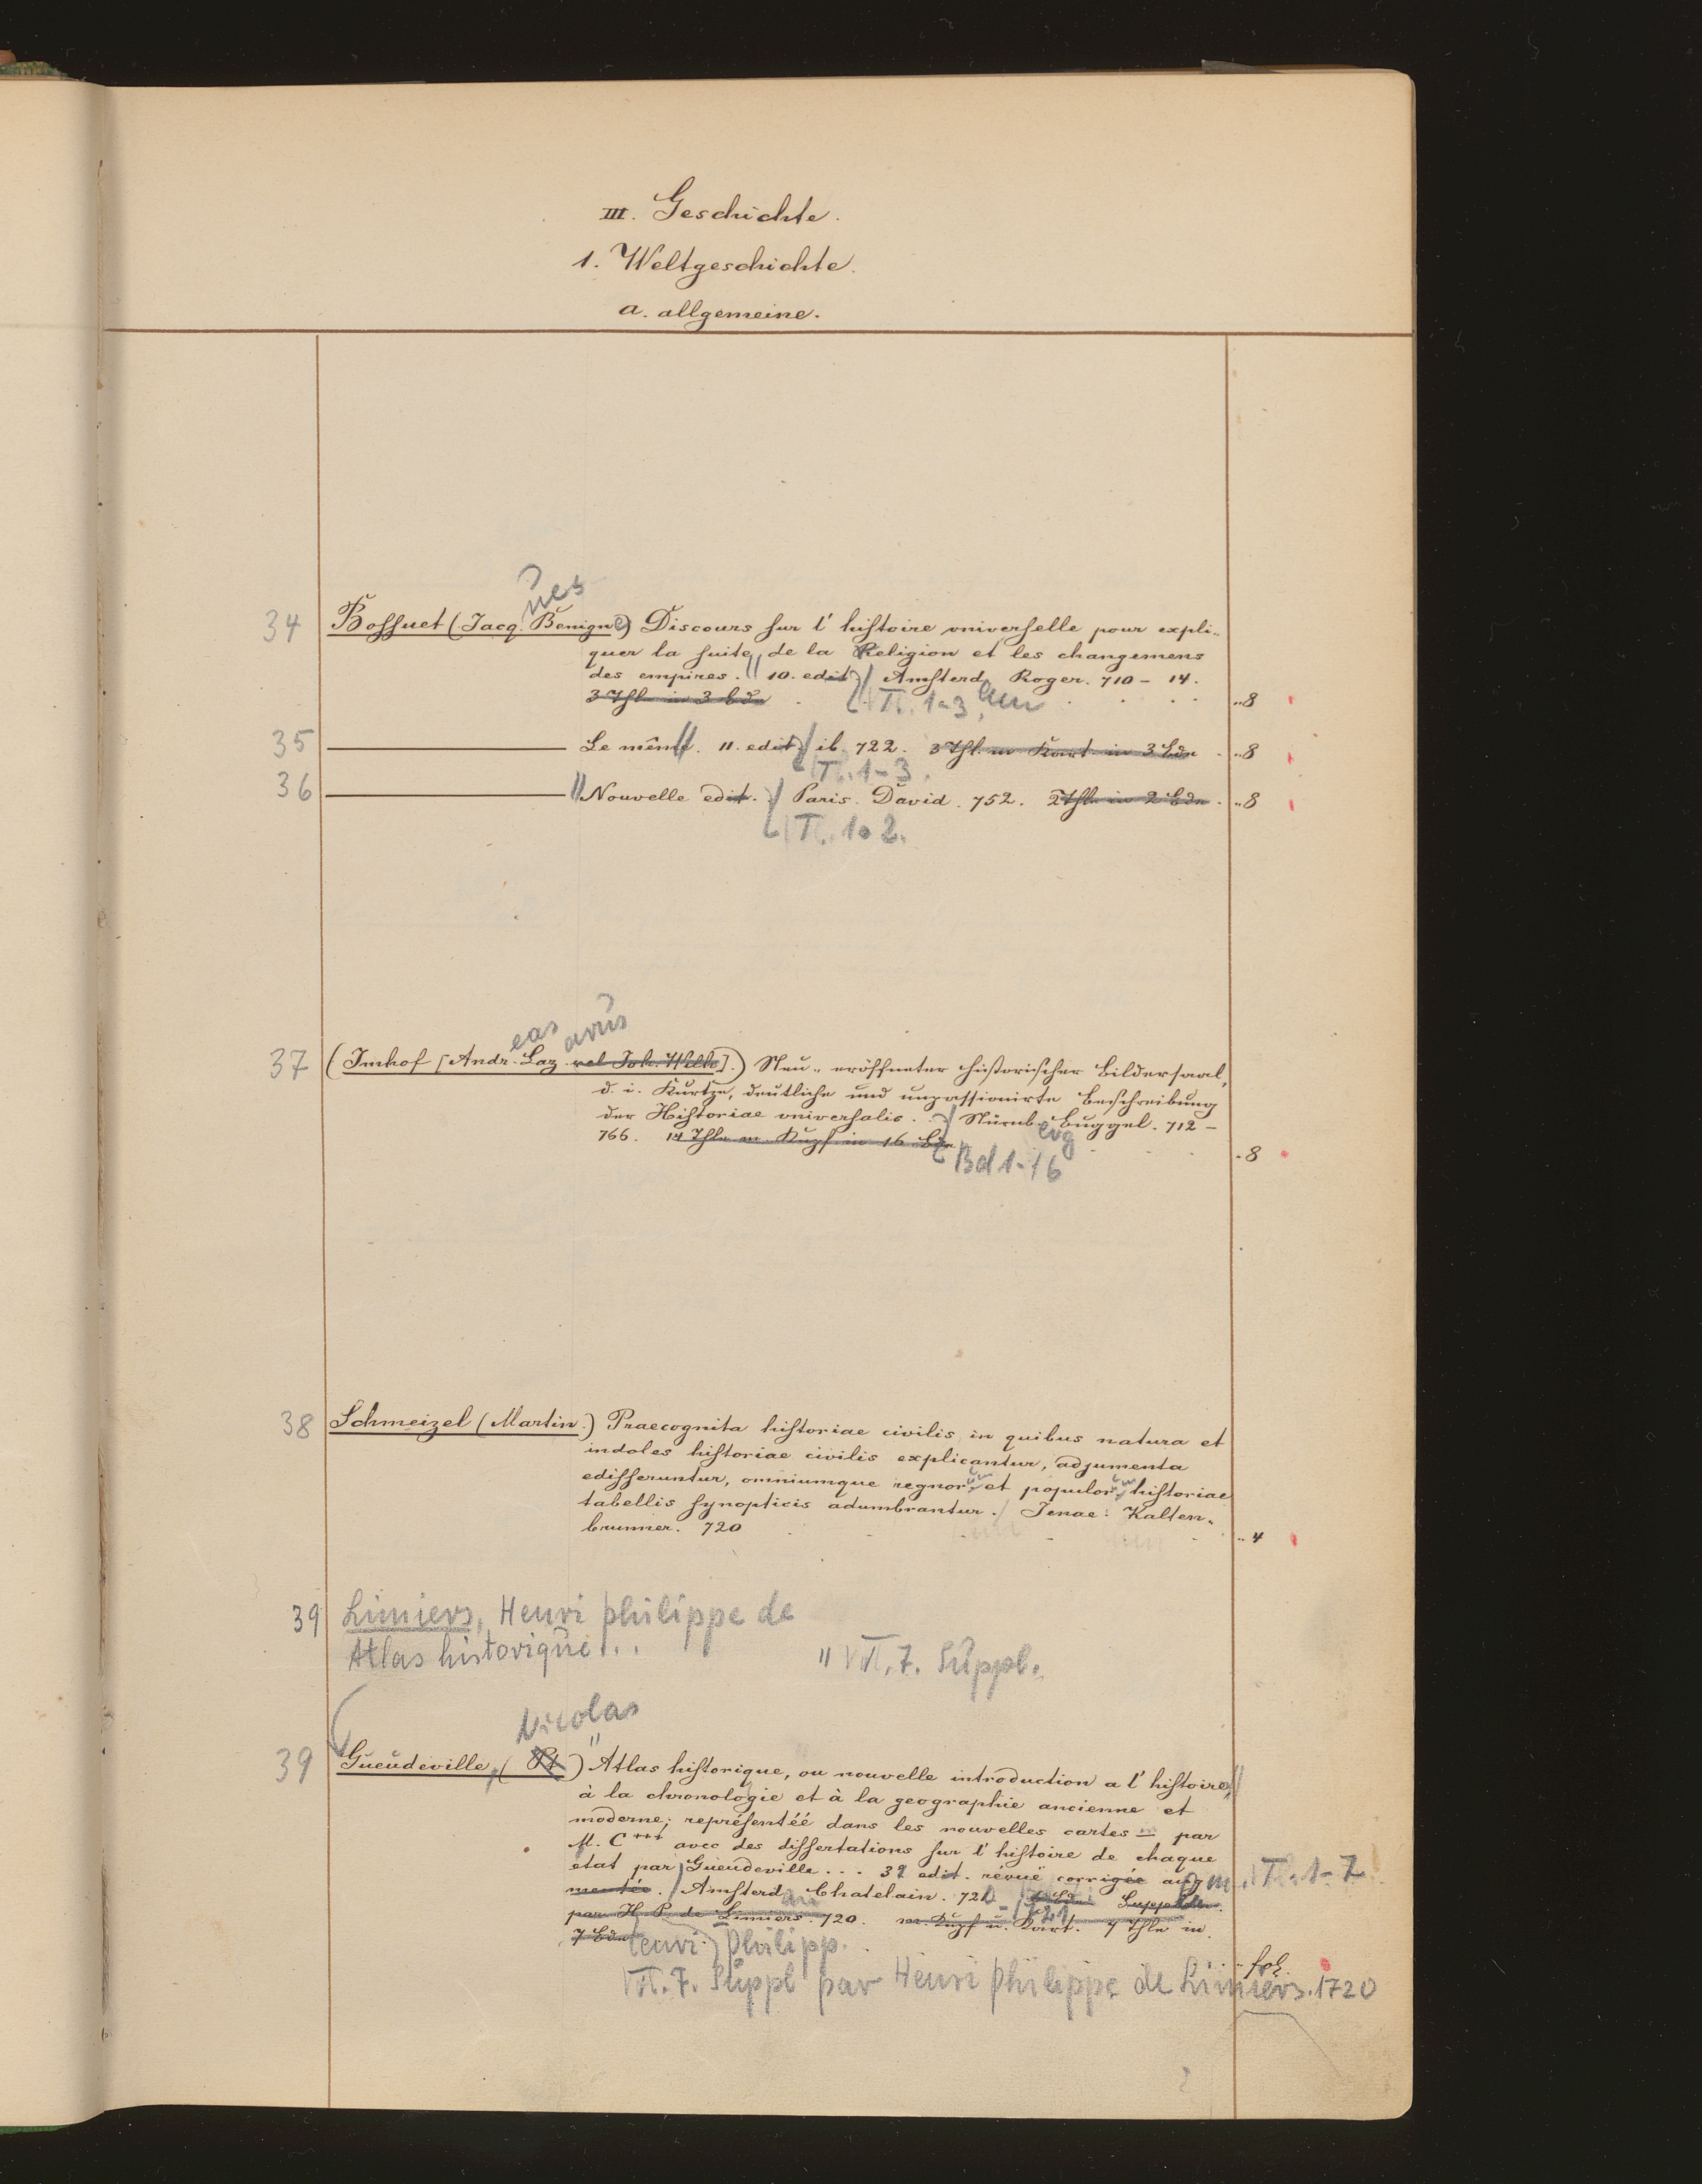 III. Geschichte.
1. Weltgeschichte.
a. allgemeine.
ues
34 Bossuet (Jacq. Benigne) Discours sur l'histoire universelle pour expli-
quer la suite de la Religion et les changemens
des empires. 10. edit. Amsterd. Roger. 710 - 14.
3 Thl. in 3 Bdn T. 1-3 am ,,8
35 Le même. 11. edit. ib. 722. 3 Thl. m Kart. in 3 Bdn ,,8
T. 1-3.
36 Nouvelle edit. Paris. David. 752. 2 Thl. in 2 Bdn. ,,8
T. 1 2.
eas arus
37 (Imhof [Andr. Laz. vel Joh. Wilh.].) Neu-eröffneter historischer Bildersaal,
d. i. Kurtze, deutliche und unpassionirte Beschreibung
der Historiae universalis. Nürnb. Buggel. 712 -
erg
766. 14 Thle m. Kupf in 16 Bdn - 8
Bd 1-16
38 Schmeizel (Martin.) Praecognita historiae civilis, in quibus natura et
indoles historiae civilis explicantur, adjumenta
edisseruntur, omniumque regnorum et populorum historiae
tabellis synopticis adumbrantur. Jenae: Kalten-
brunner. 720 ,,4
39 Limiers, Henri philippe de
Atlas historique... " T. 7. Suppl.
Nicolas
39 Gueudeville, (Pt) Atlas historique, ou nouvelle introduction a l'histoire,
à la chronologie et à la geographie ancienne et
moderne; représentéé dans les nouvelles cartes par
M. C*** avec des dissertations sur l'histoire de chaque
état par Gueudeville... 3e edit. révuë corrigée aug m. T. 1-7
mentée. Amsterd. Chatelain. 721 - 1721 Suppl.
par H. P. de Limiers. 720. m. Kupf u. Kart. 7 Thle in
7 Bdn (enri) Philipp. fol.
T. 7. Suppl par Henri philippe de Limiers. 1720